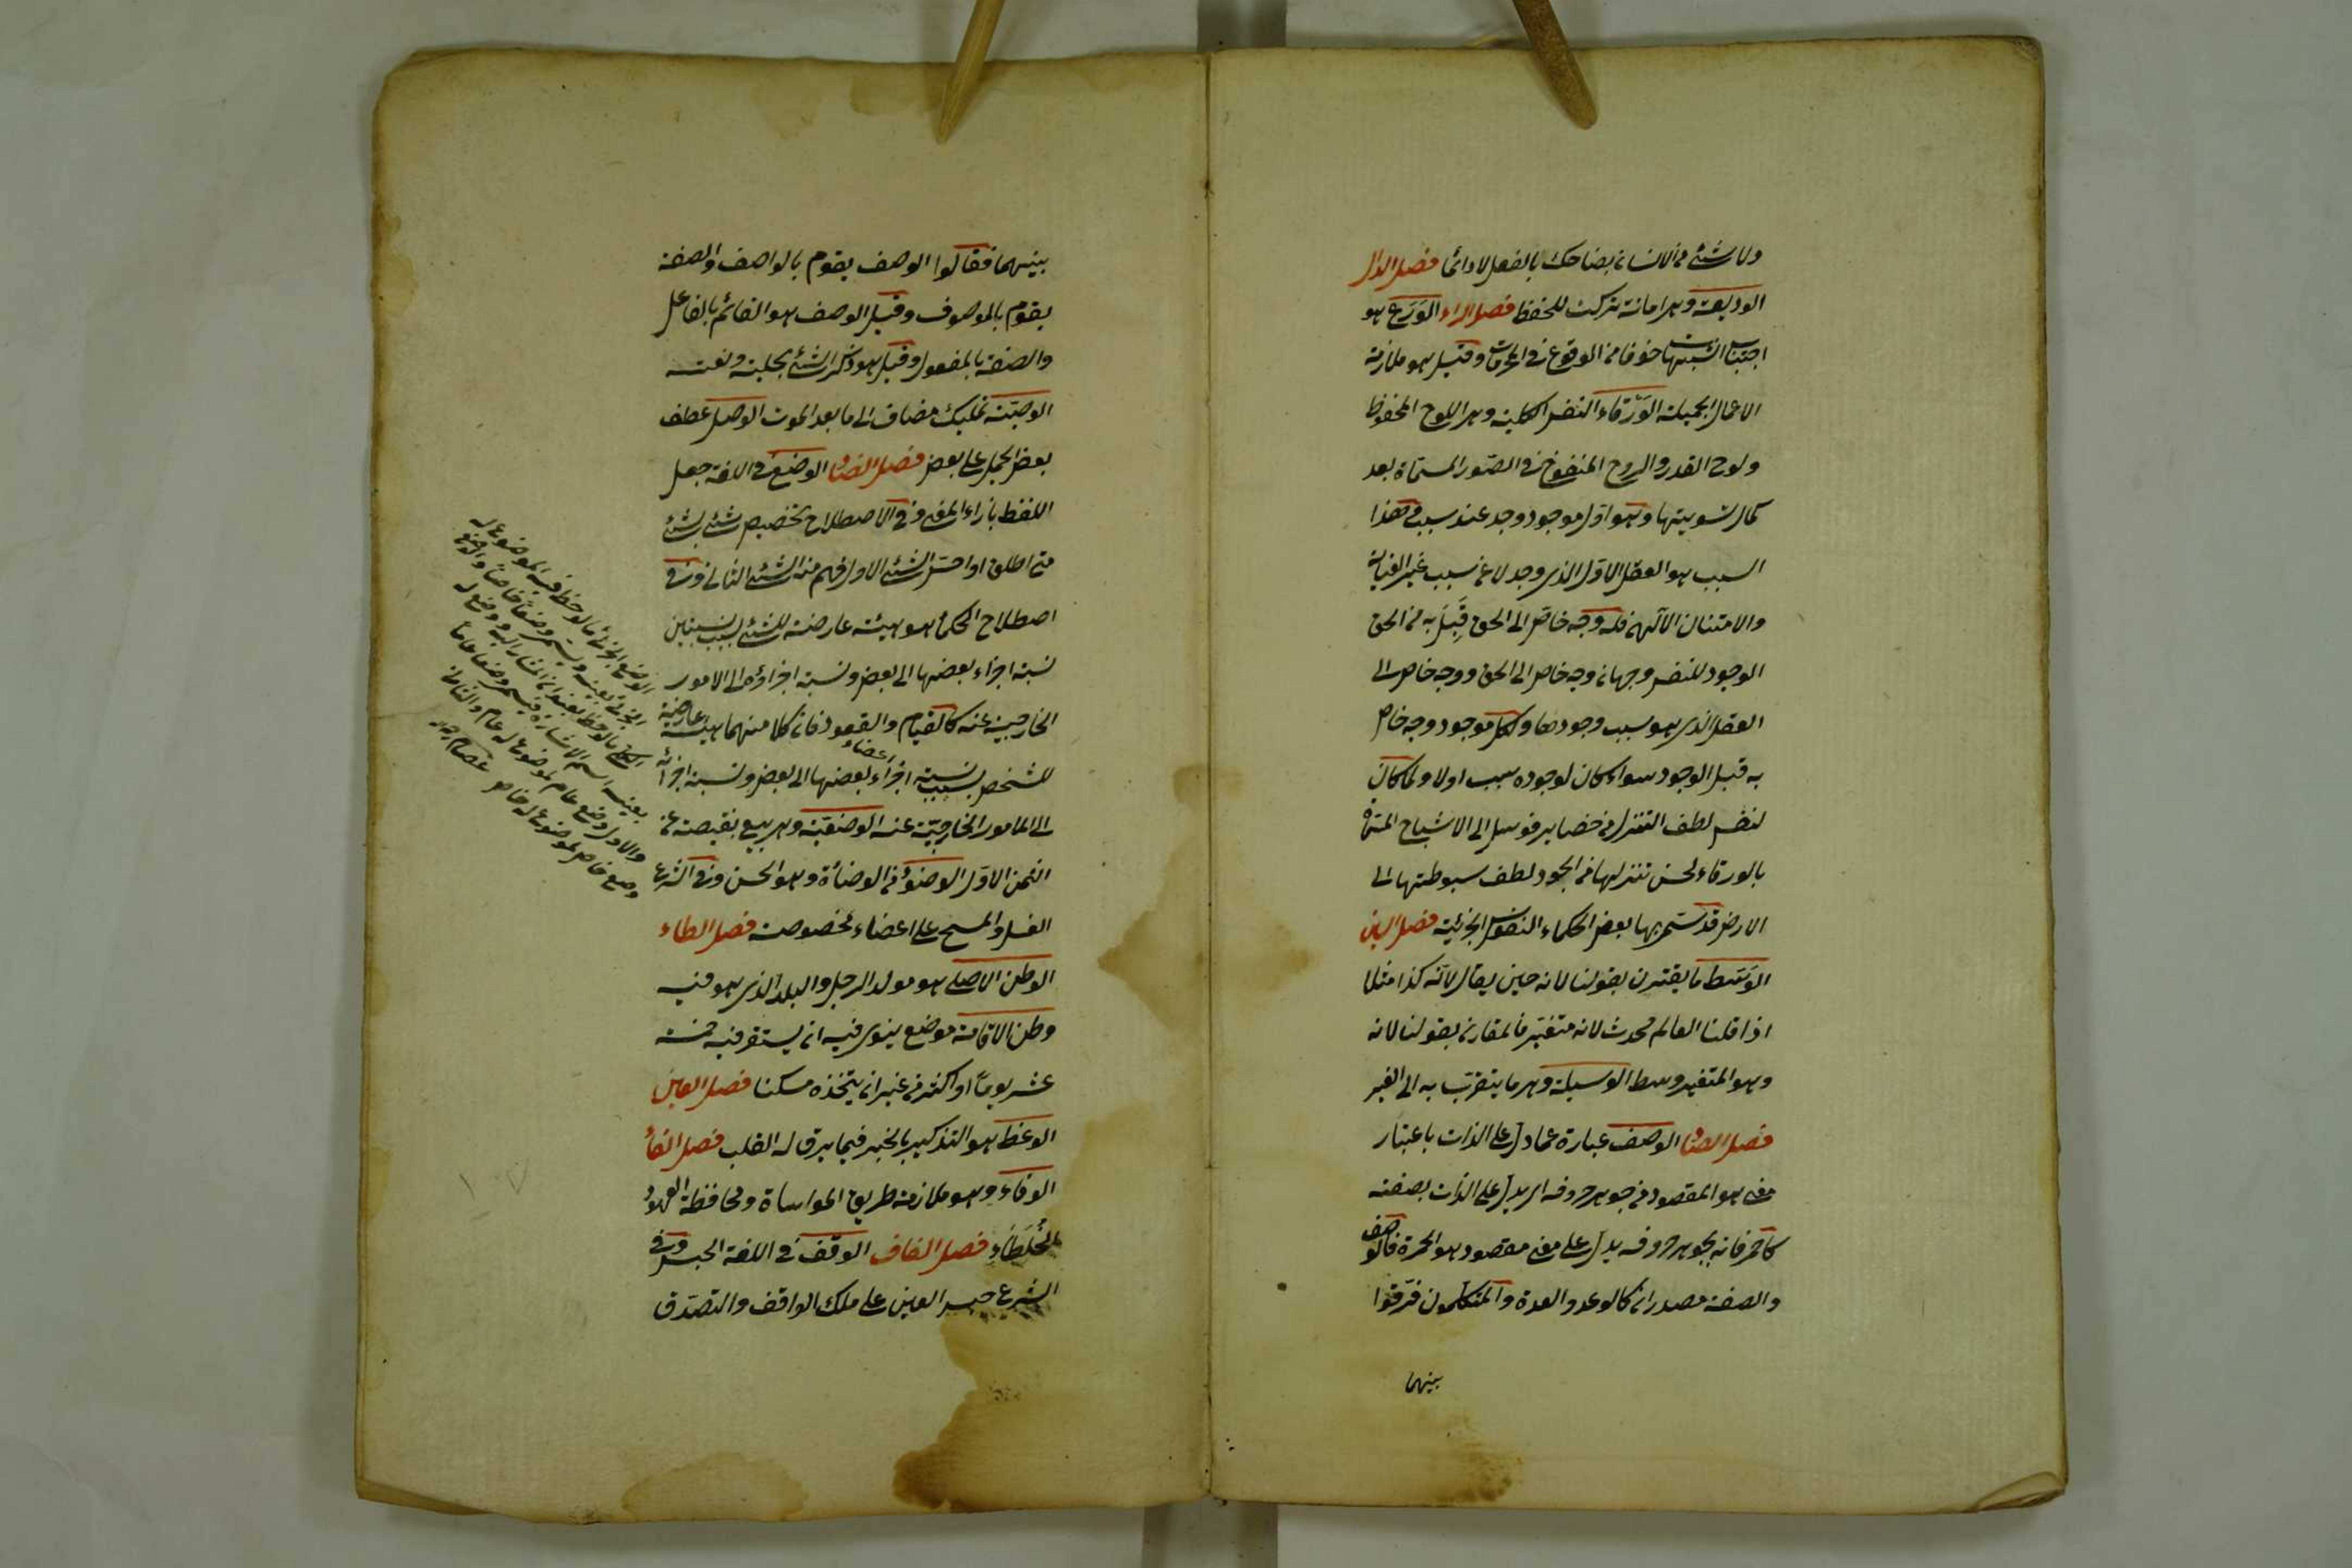 ولا شئ من الانسان بضاحك بالفعل لا دائما فصل الدال
الوديعة وهى امانة تركت للحفظ فصل الراء الوَرَع هو
اجتناب الشبهات خوفا من الوقوع فى المحرمات وقيل هو ملازمة
الاعمال الجميلة الوَرْقاء النفس الكلية وهى اللوح المحفوظ
ولوح القدر والروح المنفوخ فى الصّور المسوّاة بعد
كمال تسويتها وهو اوّل موجود وجد عند سبب وهذا
السبب هو العقل الاوّل الذى وجد لا عن سبب غير العناية
والامتنان الآلهى فله وجه خاص الى الحق قَبِلَ به من الحق
الوجود للنفس وجهان وجه خاص الى الحق ووجه خاص الى
العقل الذى هو سبب وجودها ولكل موجود وجه خاص
به قبل الوجود سواء كان لوجوده سبب اولا ولما كان
لنفس لطف التنزل من حضاير قدس الى الاشباح المسوّاة
بالورقاء لحسن تنزلها من الجود لطف سبوطتها الى
الارض قد سمى بها بعض الحكماء النفوس الجزئية فصل السين
الوَسَط ما يقترن بقولنا لانه حين يقال لانّه كذا مثلا
اذا قلنا العالم محدث لانه متغيّر فالمقارن بقولنا لانه
وهو المتغير وسط الوسيلة وهى ما يتقرّب به الى الغير
فصل الصاد الوصف عبارة عما دل على الذات باعتبار
معنى هو المقصود من جوهر حروفه اى يدل على الذات بصفته
كاحمر فانه بجوهر حروفه يدل على معنى مقصود هو الحمرة فالوصف
والصفة مصدران كالوعد والعدة والمتكلمون فرّقوا
بينهما
بينهما فقالوا الوصف يقوم بالواصف والصفة
يقوم بالموصوف وقيل الوصف هو القائم بالفاعل
والصفة بالمفعول وقيل هو ذكر الشئ بحليته ونعته
الوصيّة تمليك مضاف الى ما بعد الموت الوصل عطف
بعض الجمل على بعض فصل الضاد الوضع فى اللغة جعل
اللفظ بازاء المعنى وفى الاصطلاح تخصيص شئ بشئ
متى اطلق او احسّ الشئ الاول فهم منه الشئ الثانى وفى
اصطلاح الحكماء هو هيئة عارضة للشئ بسبب نسبتين
نسبة اجزاء بعضها الى بعض ونسبة اجزاؤه الى الامور
الخارجية عنه كالقيام والقعود فان كلا منهما هيئة عارضة
للشخص بسبب نسبة اجزاء اعضاء بعضها الى بعض ونسبة اجزائه
الى الامور الخارجيّة عنه الوضعيّة وهى بيع بنقيصة عن
الثمن الاوّل الوضوء من الوضأة وهو الحسن وفى الشرع
الغسل والمسح على اعضاء مخصوصة فصل الطاء
الوطن الاصلى هو مولد الرجل والبلد الذى هو فيه
وطن الاقامة موضع ينوى فيه ان يستقر فيه خمسة
عشر يوماً او اكثر من غير ان يتخذه مسكنا فصل العين
الوعظ هو التذكير بالخير فيما يرق له القلب فصل الفاء
الوفاء وهو ملازمة طريق المواساة ومحافظة العهود
الخُلَطَاء فصل القاف الوقف فى اللغة الحبس وفى
الشرع حبس العين على ملك الواقف والتصدّق
الوضع الجزئى ما لوحظ فيه الموضوع له
الجزئى بعينه ويسمى وضعاً خاصا والوضع
الكلى ما لوحظ
بعينه اسم الاشارة فيسمى وضعا عاما
والاول وضع عام لموضوع له عام والثانى
وضع خاص لموضوع له خاص عصام